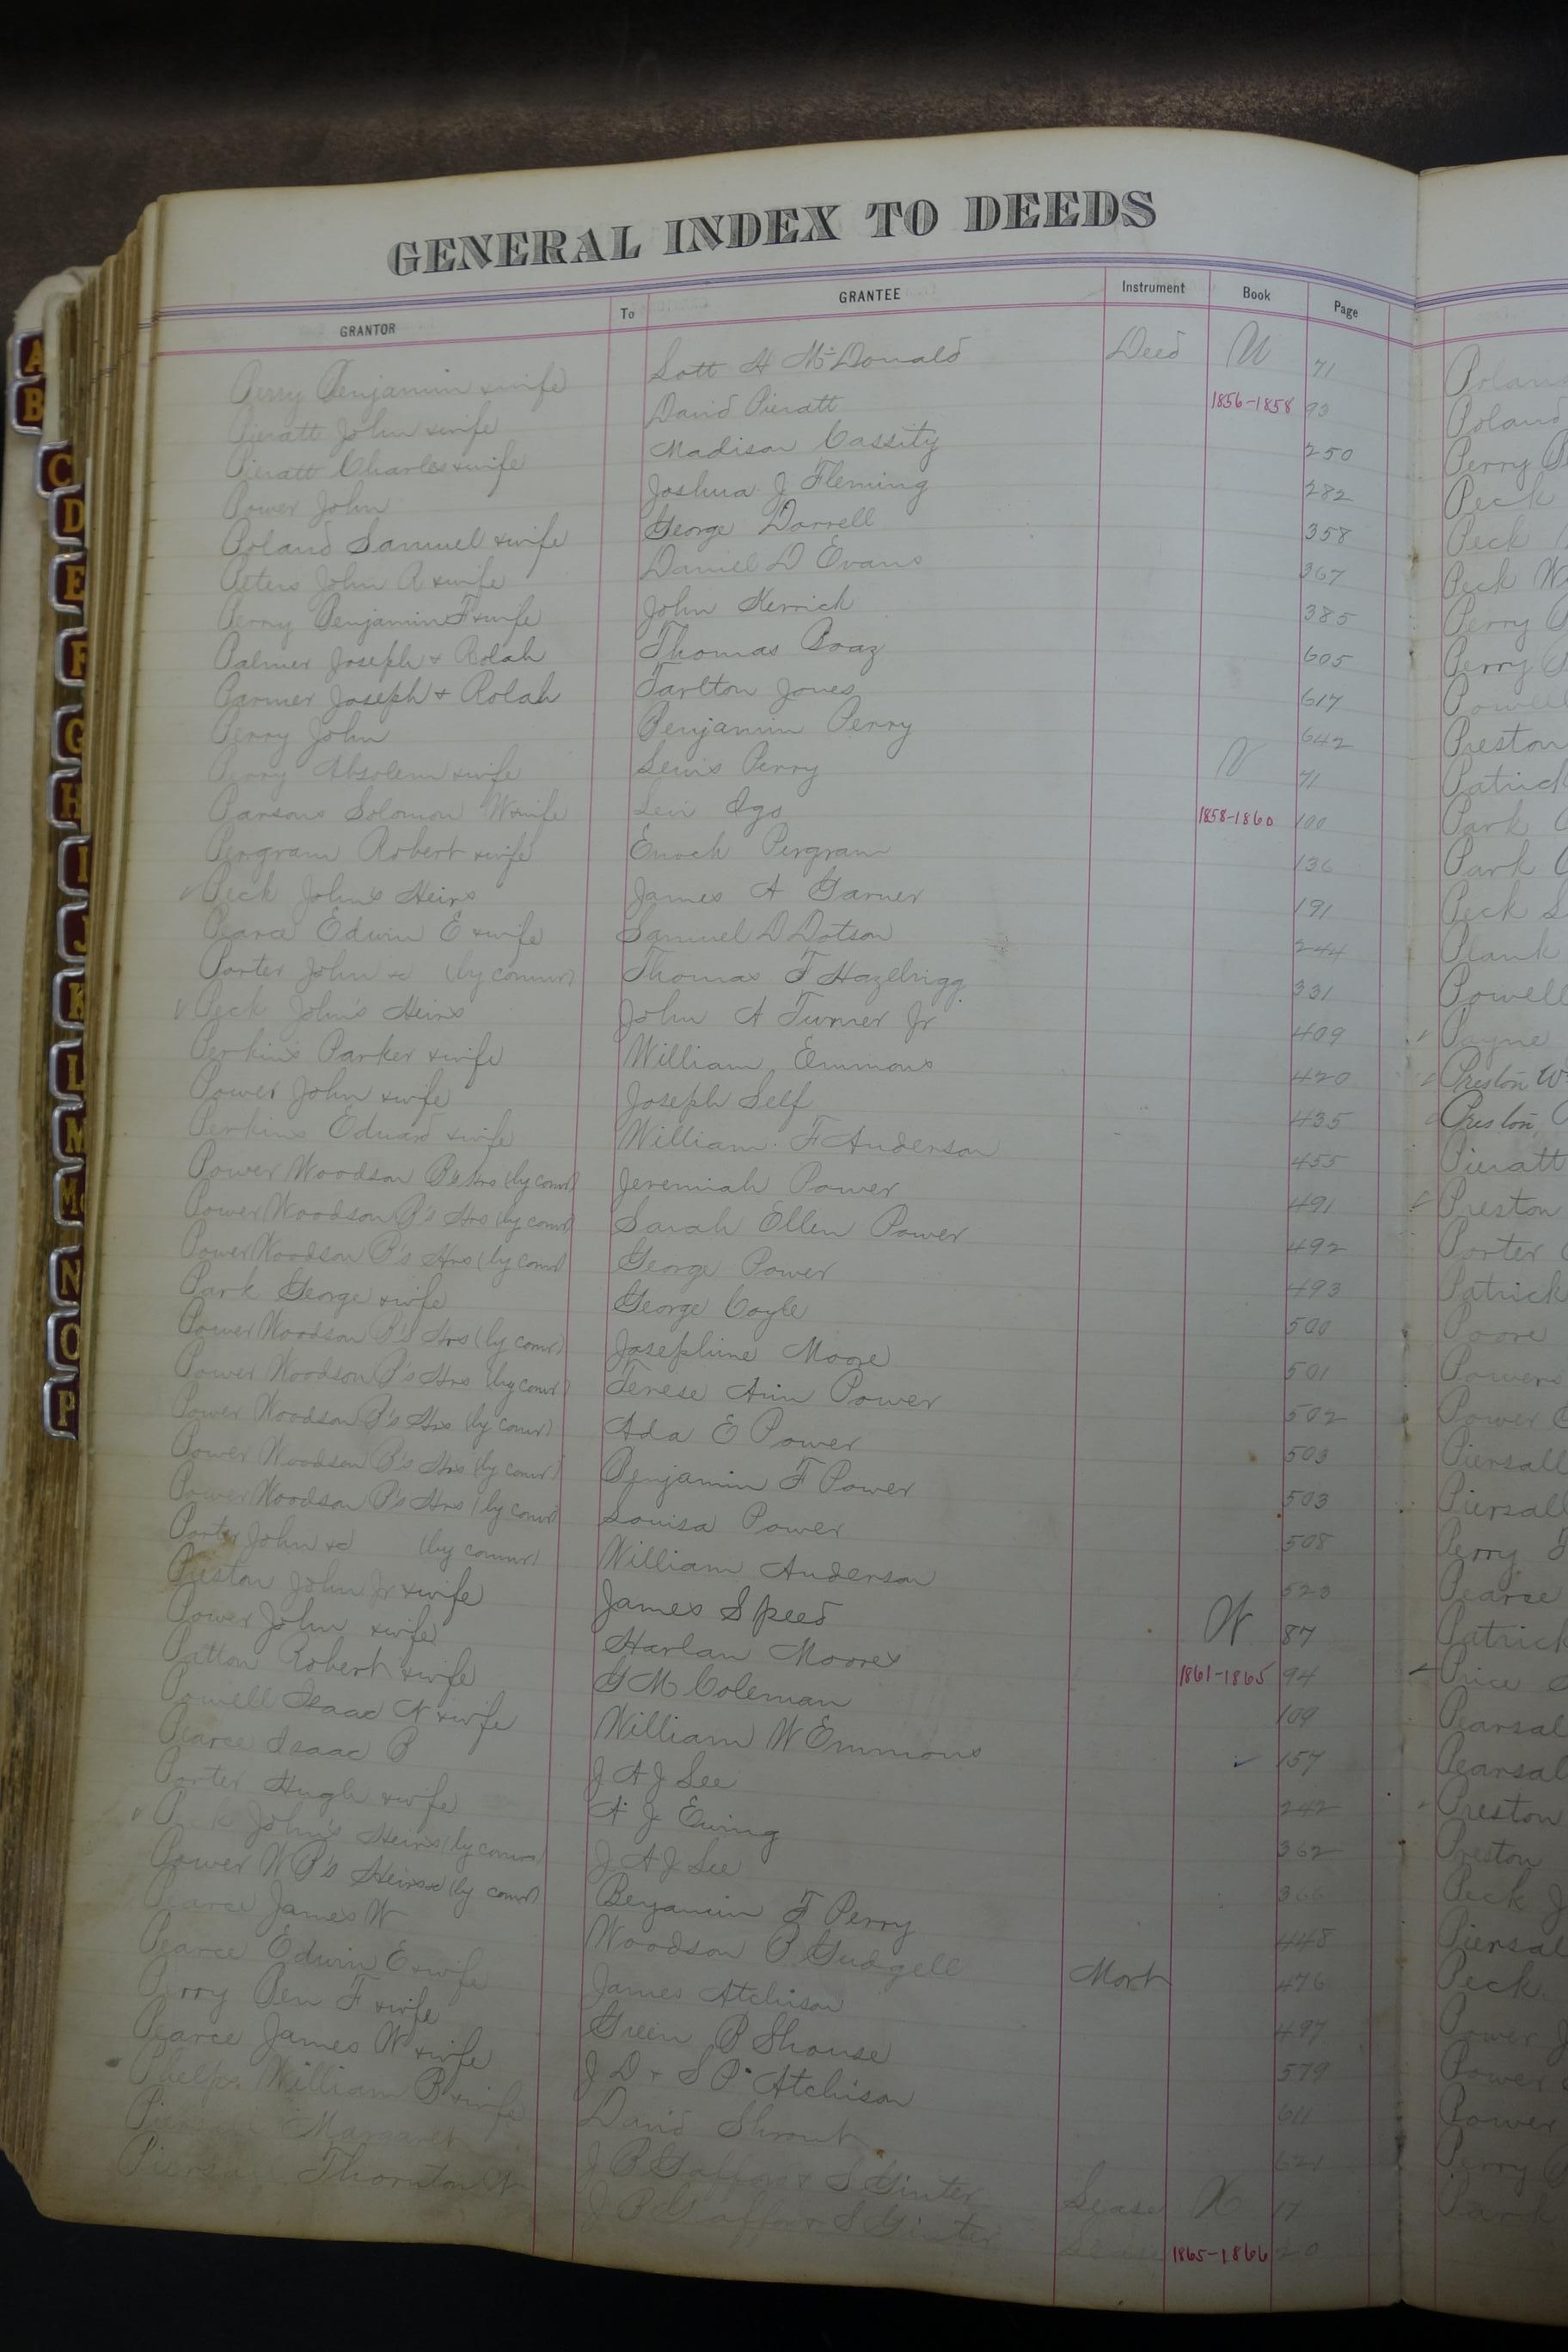 GENERAL INDEX TO DEEDS
GRANTOR To GRANTEE Instrument Book Page
Perry Benjamin & wife Lott H McDonald Deed U 71
Pieratt John & wife David Pieratt 1856-1858 93
Pieratt Charles & wife Madison Cassity 250
Power John Joshua J Fleming 282
Poland Samuel & wife George Dorrell 358
Peters John R & wife Daniel D Evans 367
Perry Benjamin F & wife John Kerrick 385
Palmer Joseph & Rolah Thomas Boaz 605
Parmer Joseph & Rolah Tarlton Jones 617
Perry John Benjamin Perry 642
Perry Absolem & wife Lewis Perry V 71
Parsons Solomon W & wife Levi Igo 1858-1860 100
Pergram Robert & wife Enoch Pergram 136
Peck John's Heirs James A Garner 191
Pearce Edwin E & wife Samuel D Dotson 244
Porter John &c (by commr) Thomas F Hazelrigg 331
Peck John's Heirs John A Turner Jr 409
Perkins Parker & wife William Emmons 420
Power John & wife Joseph Self 435
Perkins Edward & wife William F Anderson 455
Power Woodson B's Hrs (by comr) Jeremiah Power 491
Power Woodson B's Hrs (by comr) Sarah Ellen Power 492
Power Woodson B's Hrs (by comr) George Power 493
Park George & wife George Coyle 500
Power Woodson B's Hrs (by comr) Josephine Moore 501
Power Woodson B's Hrs (by comr) Terese Ann Power 502
Power Woodson B's Hrs (by comr) Ada E Power 503
Power Woodson B's Hrs (by comr) Benjamin F Power 503
Power Woodson B's Hrs (by comr) Louisa Power 508
Porter John &c (by commr) William Anderson 523
Preston John Jr & wife James Speed W 87
Power John & wife Harlan Moores 1861-1865 94
Patton Robert & wife G M Coleman 109
Powell Isaac N & wife William W Emmons 157
Pearce Isaac B J A J See 242
Porter Hugh & wife A J Ewing 362
John's Heirs (by commr) J A J See
Power W B's Heirs &c (by comr) Benjamin F Perry 448
Pearce James W Woodson B Gudgell Mort 476
Pearce Edwin E & wife James Atchison 497
Perry Ben F & wife Green B Shouse 579
Pearce James W & wife J D & S P Atchison 611
Phelps William B & wife David Shrout 621
Margaret J B Gaffory & S Ginter Lease X 17
Thornton J B Gaffory & S Ginter 1865-1866 20
Poland
Poland
Perry
Peck
Peck
Peck W
Perry
Perry
Powell
Preston
Patrick
Park
Park
Peck S
Plank
Powell
Payne
Preston W
Preston
Pieratt
Preston
Porter
Patrick
Poore
Powers
Power
Piersall
Piersall
Perry
Pearce
Patrick
Price
Pearsal
Pearsal
Preston
Preston
Peck J
Piersal
Peck
Power J
Power
Power
Perry
Park
A
B
C
D
E
F
G
H
I
J
K
L
M
Mc
N
O
P